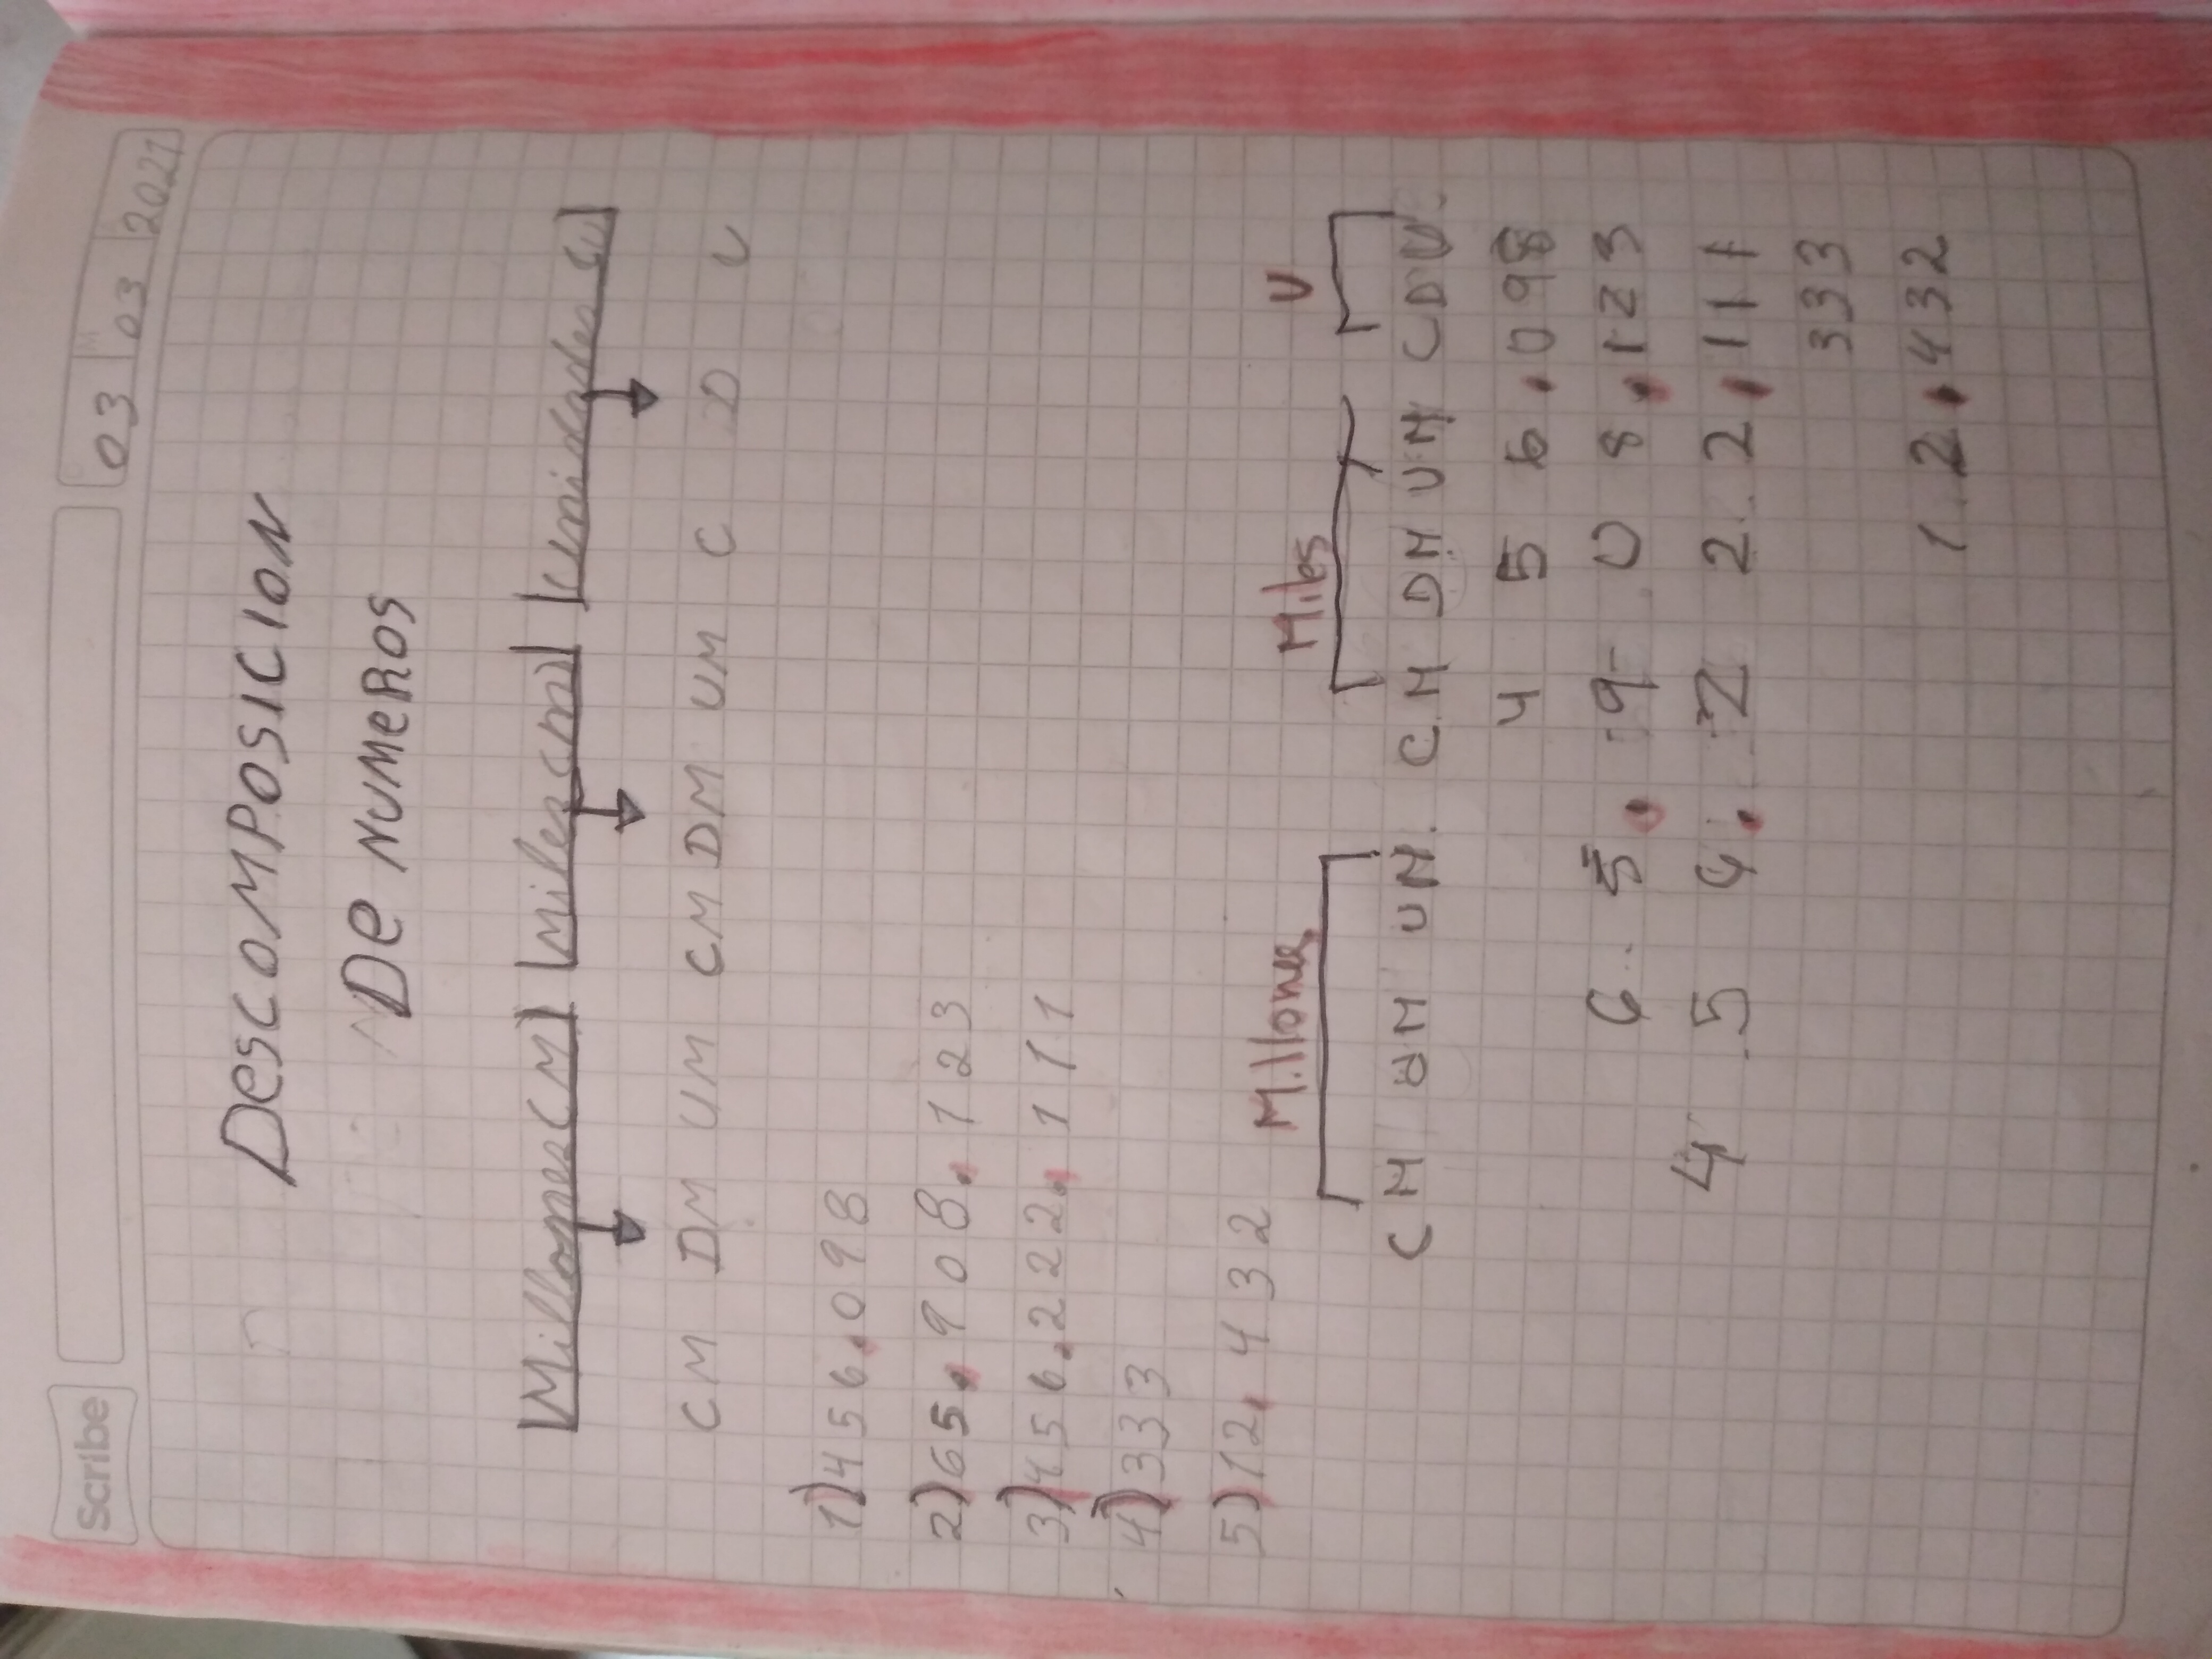 Scribe
03 M 03 2021
DescomPosicion
De NumeRos
Millones CM) Miles cm) Unidades cu
CM DM UM CM DM UM C D U
1) 456.098
2) 65.908.123
3) 456.222.111
4) 333
5) 12.432
Millones Miles U
CM DM UM. CM DM UM CDU.
4 5 6.098
6 5. 9 0 8.123
4 5 6. 2 2 2.111
333
1 2.432